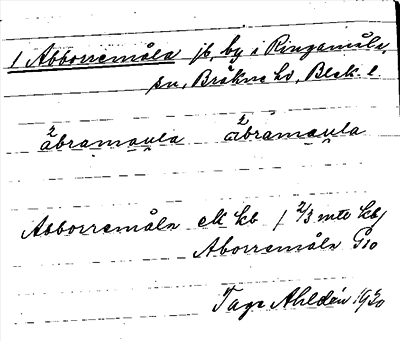 1 Abborremåla jb, by i Ringamåla,
sn, Bräkne hd, Blek. l.
åbramaula åbramaula
Abborremåla ek kb / 2/3 mtl kb/
Aborremåla G10
Tage Ahldén 1930